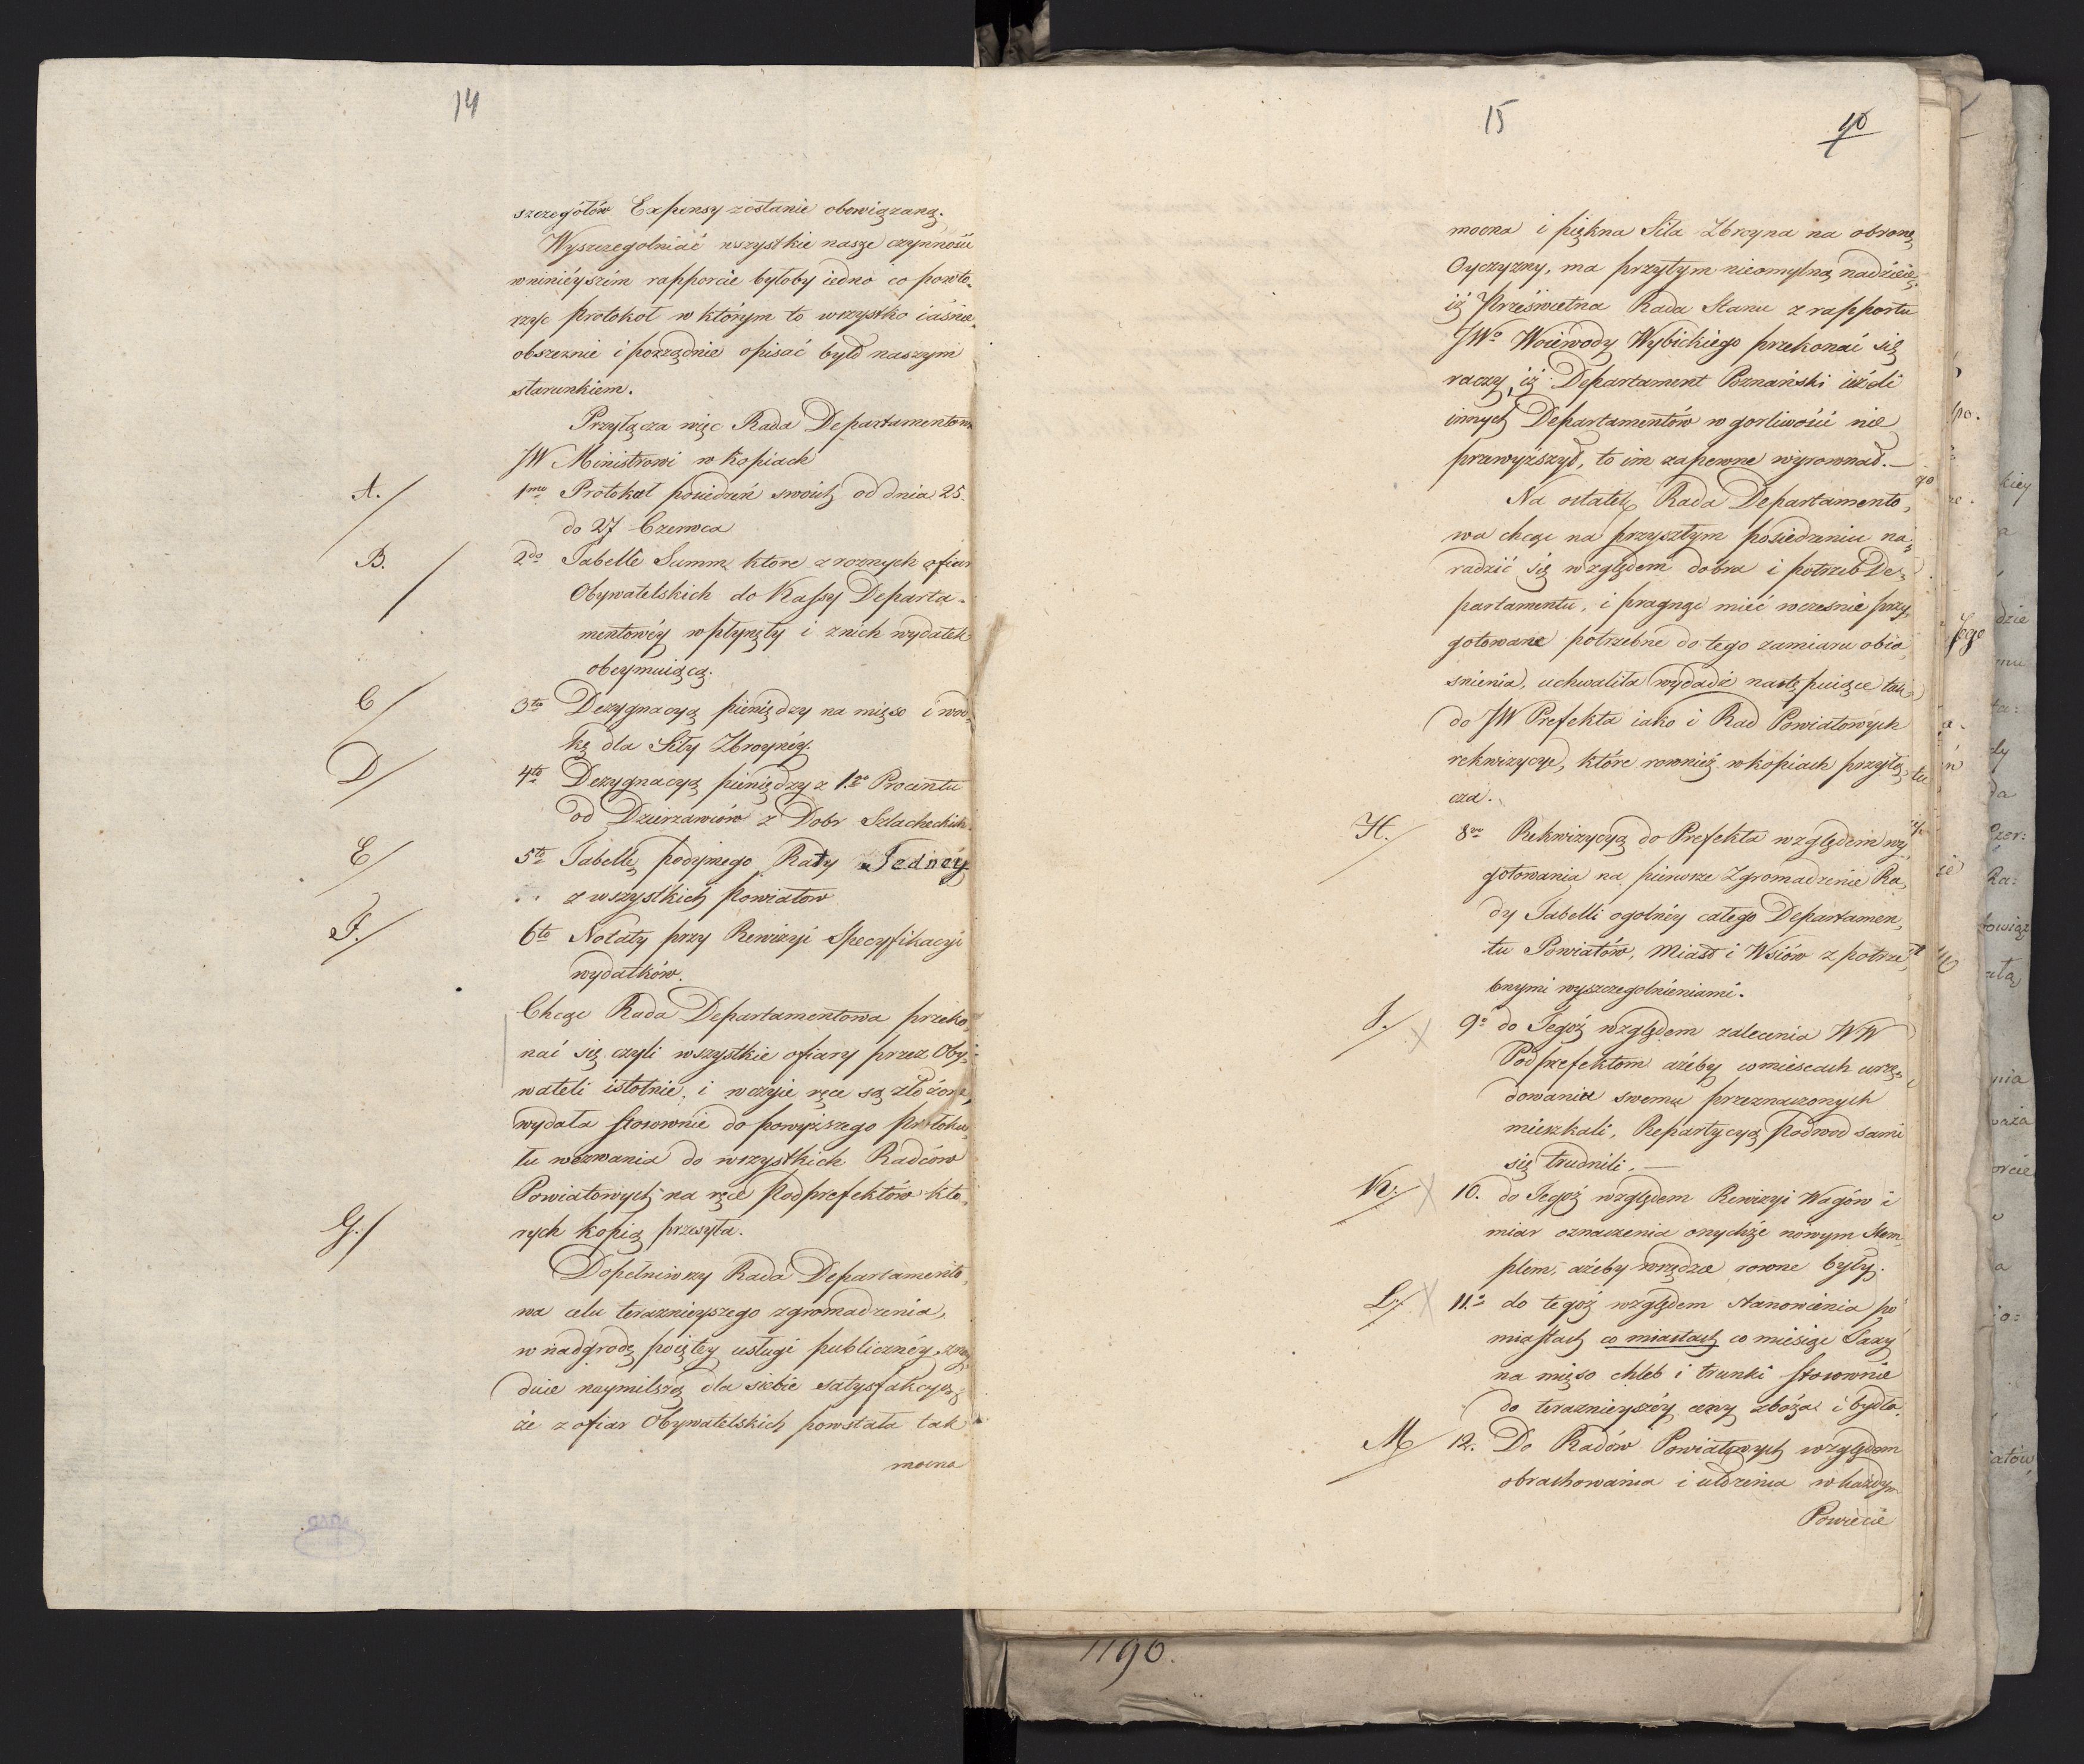 14
szczegółów Expensy zostanie obowiązaną.
Wyszczegolniać wszystkie nasze czynności
w ninieyszém rapporcie byłoby iedno co powto-
rzyc protokoł w którym to wszystko iaśnie
obszernie i porządnie opisać było naszym
starunkiem.
Przyłącza więc Rada Departamentowa
JW Ministrowi w kopiach
A./ 1mo Protokoł posiedzeń swoich od dnia 25.
do 27 Czerwca
B. / 2do Tabelle Summ, ktore z roznych ofiar
Obywatelskich do Kassy Departa-
mentowéy wpłynęły i z nich wydatek
obeymuiącą.
C / 3tio Dezygnacyą pieniędzy na mięso i wod-
kę dla Siły Zbroynéy.
D / 4to Dezygnacyą pieniędzy z 1.go Procentu
od Dzierzawców z Dobr Szlacheckich
E / 5to Tabellę podymnego Raty Jednéy
z wszystkich powiatow
F./ 6to Notaty przy Rewizyi Specyfikacyi
wydatków.
Chcąc Rada Departamentowa przeko-
nać się czyli wszystkie ofiary przez Oby-
wateli istotnie, i w czyie ręce są złożone,
wydała stosownie do powyższego protoku-
łu wezwania do wszystkich Radców
Powiatowych na ręce Podprefektów kto-
G./ rych kopią przesyła.
Dopełniwszy Rada Departamento-
wa celu teraznieyszego zgromadzenia,
w nadgrodę poiętey usługi publicznéy, znay-
duie naymilszą dla siebie satysfakcyą,
że z ofiar Obywatelskich powstała tak
mocna
15
10
mocna i piękna Siła Zbroyna na obronę
Oyczyzny, ma przytym nieomylną nadzieię,
iż Prześwietna Rada Stanu z rapportu
JWo Woiewody Wybickiego przekonać się
raczy, iż Departament Poznański ieżeli
innych Departamentów w gorliwości nie
przewyższył, to im zapewne wyrownał.—
Na ostatek Rada Departamento-
wa chcąc na przyszłym posiedzeniu na-
radzić się względem dobra i potrzeb De-
partamentu, i pragnąc mieć wczesnie przy-
gotowane potrzebne do tego zamiaru obia-
snienia, uchwaliła wydadź następuiące tak
do JW Prefekta iako i Rad Powiatowych
rekwizycye, które rownież w kopiach przyłą-
cza.
H./ 8vo Rekwizycyą do Prefekta względem wy-
gotowania na pierwsze Zgromadzenie Ra-
dy Tabelli ogolnéy całego Departamen-
tu Powiatów, Miast i Wsiów z potrze-
bnymi wyszczegolnieniami.
J./ 9o do Tegoż względem zalecenia WW
Podprefektom ażeby w miescach urzę-
dowania swemu przeznaczonych
mieszkali, Repartycyą Podwod sami
się trudnili.—
K:/ 10. do Tegoż względem Rewizyi Wagów i
miar oznaczenia onychże nowym Stem-
plem, ażeby wszędze rowne były.
L:/ 11.o do tegoż względem stanowienia po
miastach co miastach co miesiąc Taxy
na mięso chleb i trunki stosownie
do teraznieyszéy ceny zboża i bydła
M / 12. Do Radów Powiatowych względem
obrachowania i ułożenia w każdym
Powiecie
1190.